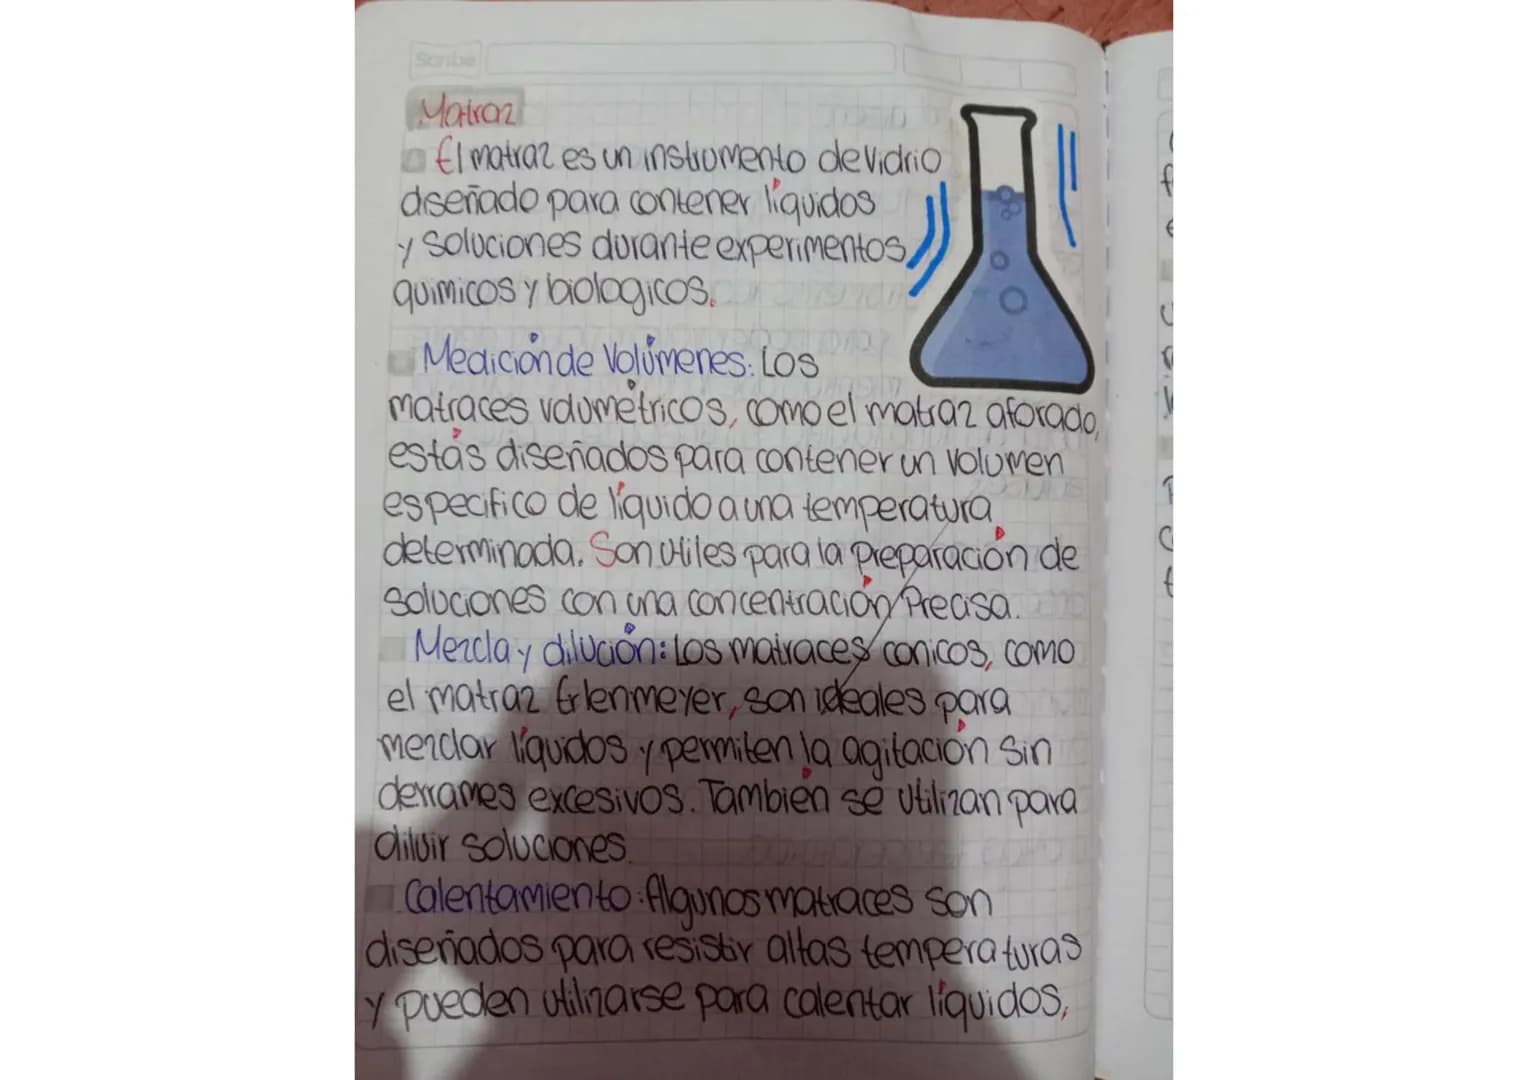 Scribe
Matraz
El matraz es un instrumento de vidrio
diseñado para contener líquidos
y soluciones durante experimentos
quimicos y biologicos.
Medición de Volúmenes: Los
matraces volumétricos, como el matraz aforado,
estás diseñados para contener un volumen
especifico de líquido a una temperatura
determinada. Son utiles para la preparación de
soluciones con una concentración Precisa.
Mezcla y dilución: Los matraces conicos, como
el matraz Erlenmeyer, son ideales para
mezclar líquidos y permiten la agitación sin
derrames excesivos. También se utilizan para
diluir soluciones.
Calentamiento: Algunos matraces son
diseñados para resistir altas temperaturas
y pueden utilizarse para calentar líquidos,